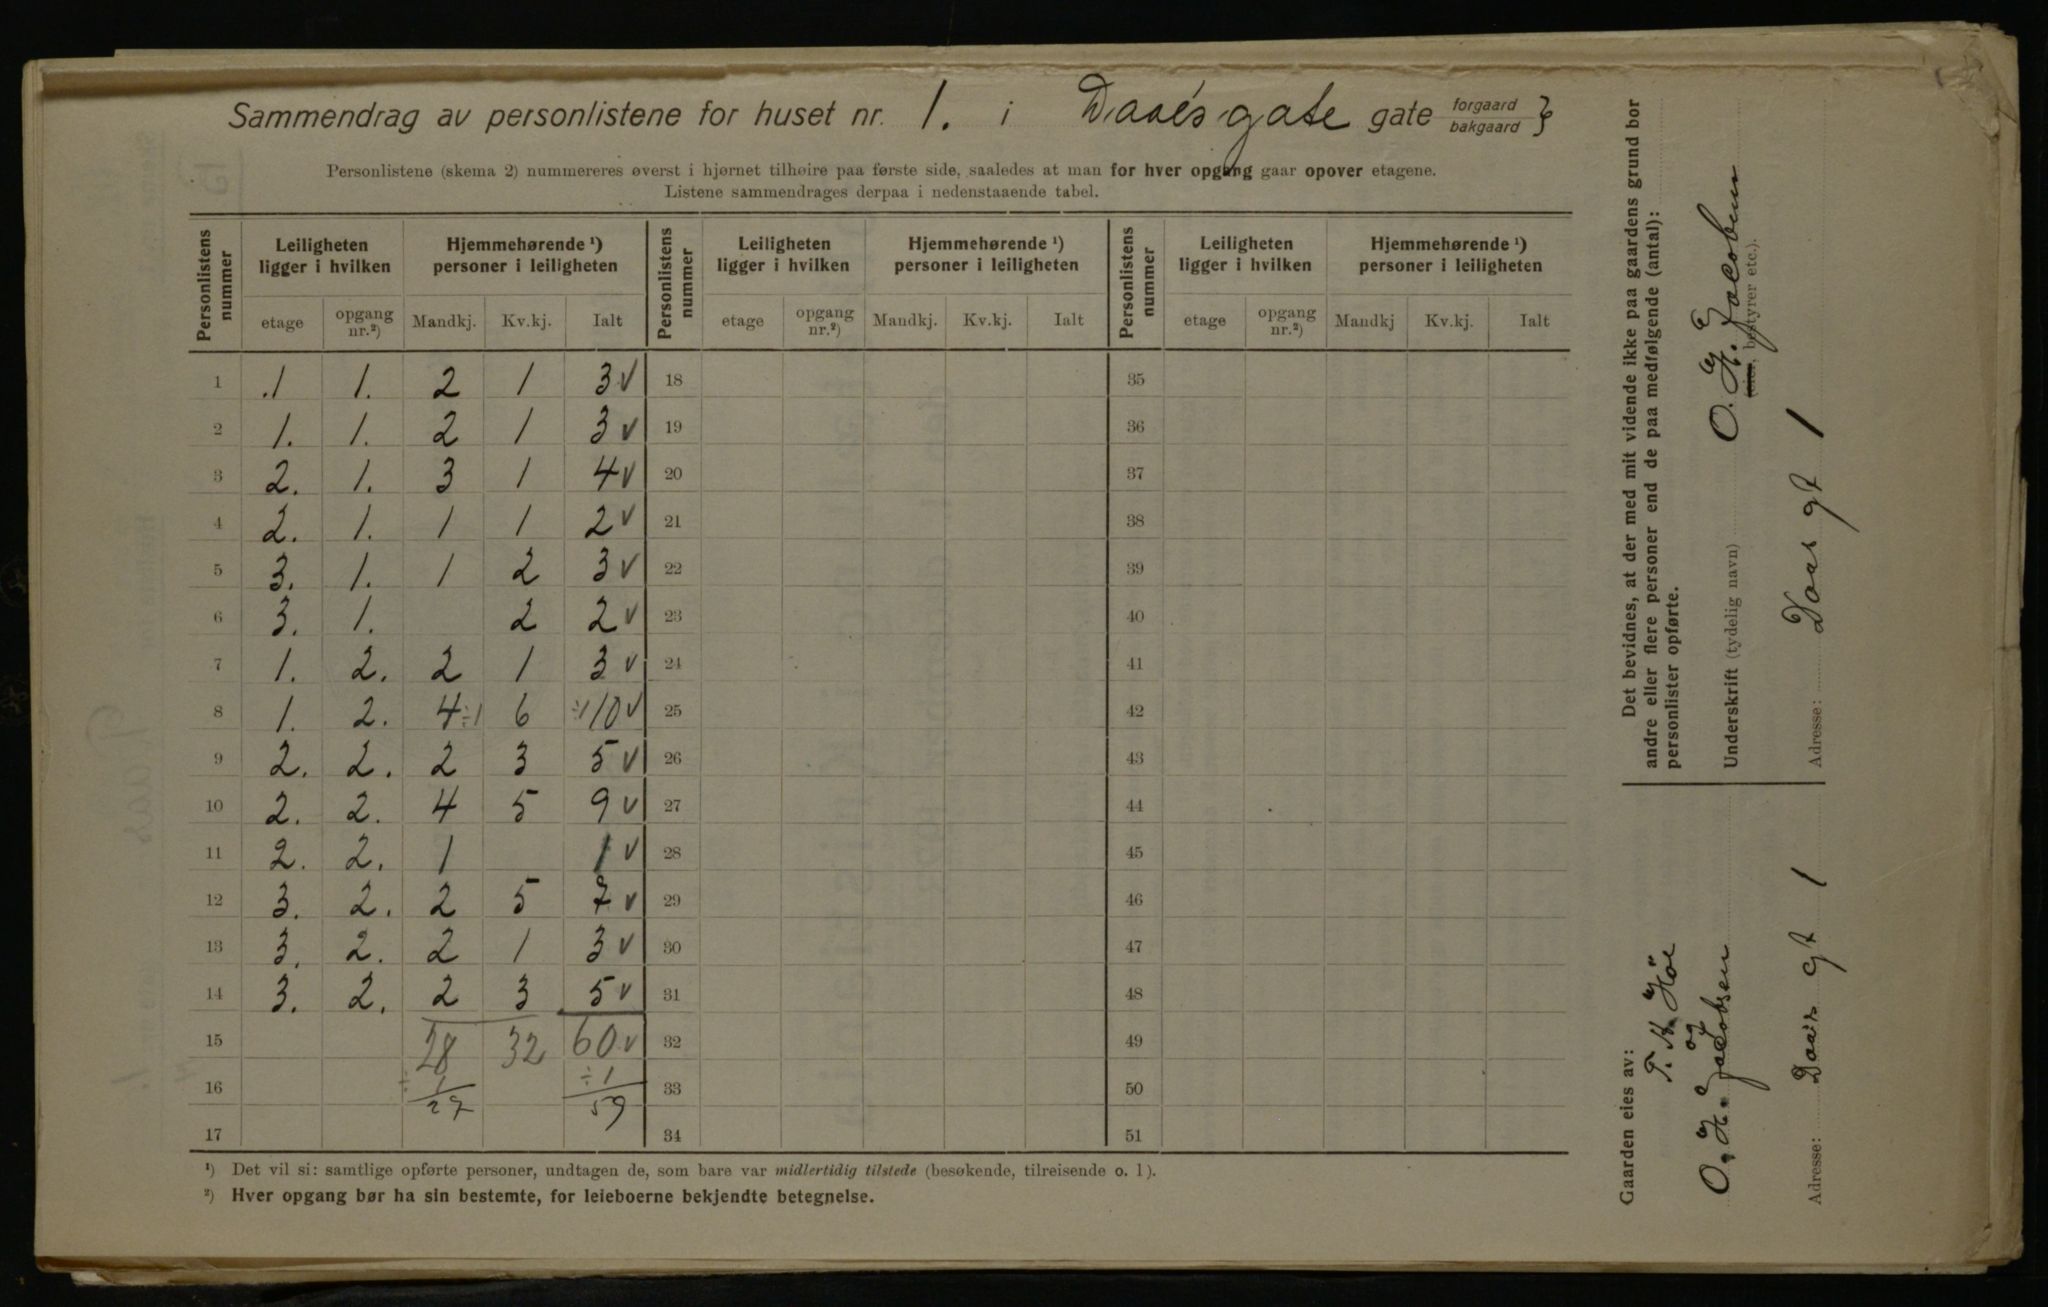 Sammendrag av personlistene for huset nr. 1. i Daaésgate gate forgaard bakgaard }
Personlistene (skema 2) nummereres øverst i hjørnet tilhøire paa første side, saaledes at man for hver opgang gaar opover etagene.
Listene sammendrages derpaa i nedenstaaende tabel.
Personlistens nummer | Leiligheten ligger i hvilken | Hjemmehørende ¹) personer i leiligheten | Personlistens nummer | Leiligheten ligger i hvilken | Hjemmehørende ¹) personer i leiligheten | Personlistens nummer | Leiligheten ligger i hvilken | Hjemmehørende ¹) personer i leiligheten
etage | opgang nr.²) | Mandkj. | Kv.kj. | Ialt | etage | opgang nr.²) | Mandkj. | Kv.kj. | Ialt | etage | opgang nr.²) | Mandkj | Kv.kj. | Ialt
1 .1 1. 2 1 3 v 18 35
2 1. 1. 2 1 3 v 19 36
3 2. 1. 3 1 4 v 20 37
4 2. 1. 1 1 2 v 21 38
5 3. 1. 1 2 3 v 22 39
6 3. 1. 2 2 v 23 40
7 1. 2. 2 1 3 v 24 41
8 1. 2. 4 ÷1 6 ÷1 10 v 25 42
9 2. 2. 2 3 5 v 26 43
10 2. 2. 4 5 9 v 27 44
11 2. 2. 1 1 v 28 45
12 3. 2. 2 5 7 v 29 46
13 3. 2. 2 1 3 v 30 47
14 3. 2. 2 3 5 v 31 48
15 28 32 60 v 32 49
16 ÷ 1 ÷ 1 33 50
27 59
17 34 51
¹) Det vil si: samtlige opførte personer, undtagen de, som bare var midlertidig tilstede (besøkende, tilreisende o. l).
²) Hver opgang bør ha sin bestemte, for leieboerne bekjendte betegnelse.
Det bevidnes, at der med mit vidende ikke paa gaardens grund bor
andre eller flere personer end de paa medfølgende (antal):
personlister opførte.
Underskrift (tydelig navn) O. H. Jacobsen
(eier, bestyrer etc.).
Adresse: Daas gt 1
Gaarden eies av:
T. H. Höe
og
O. H. Jacobsen
Adresse: Daaes gt 1